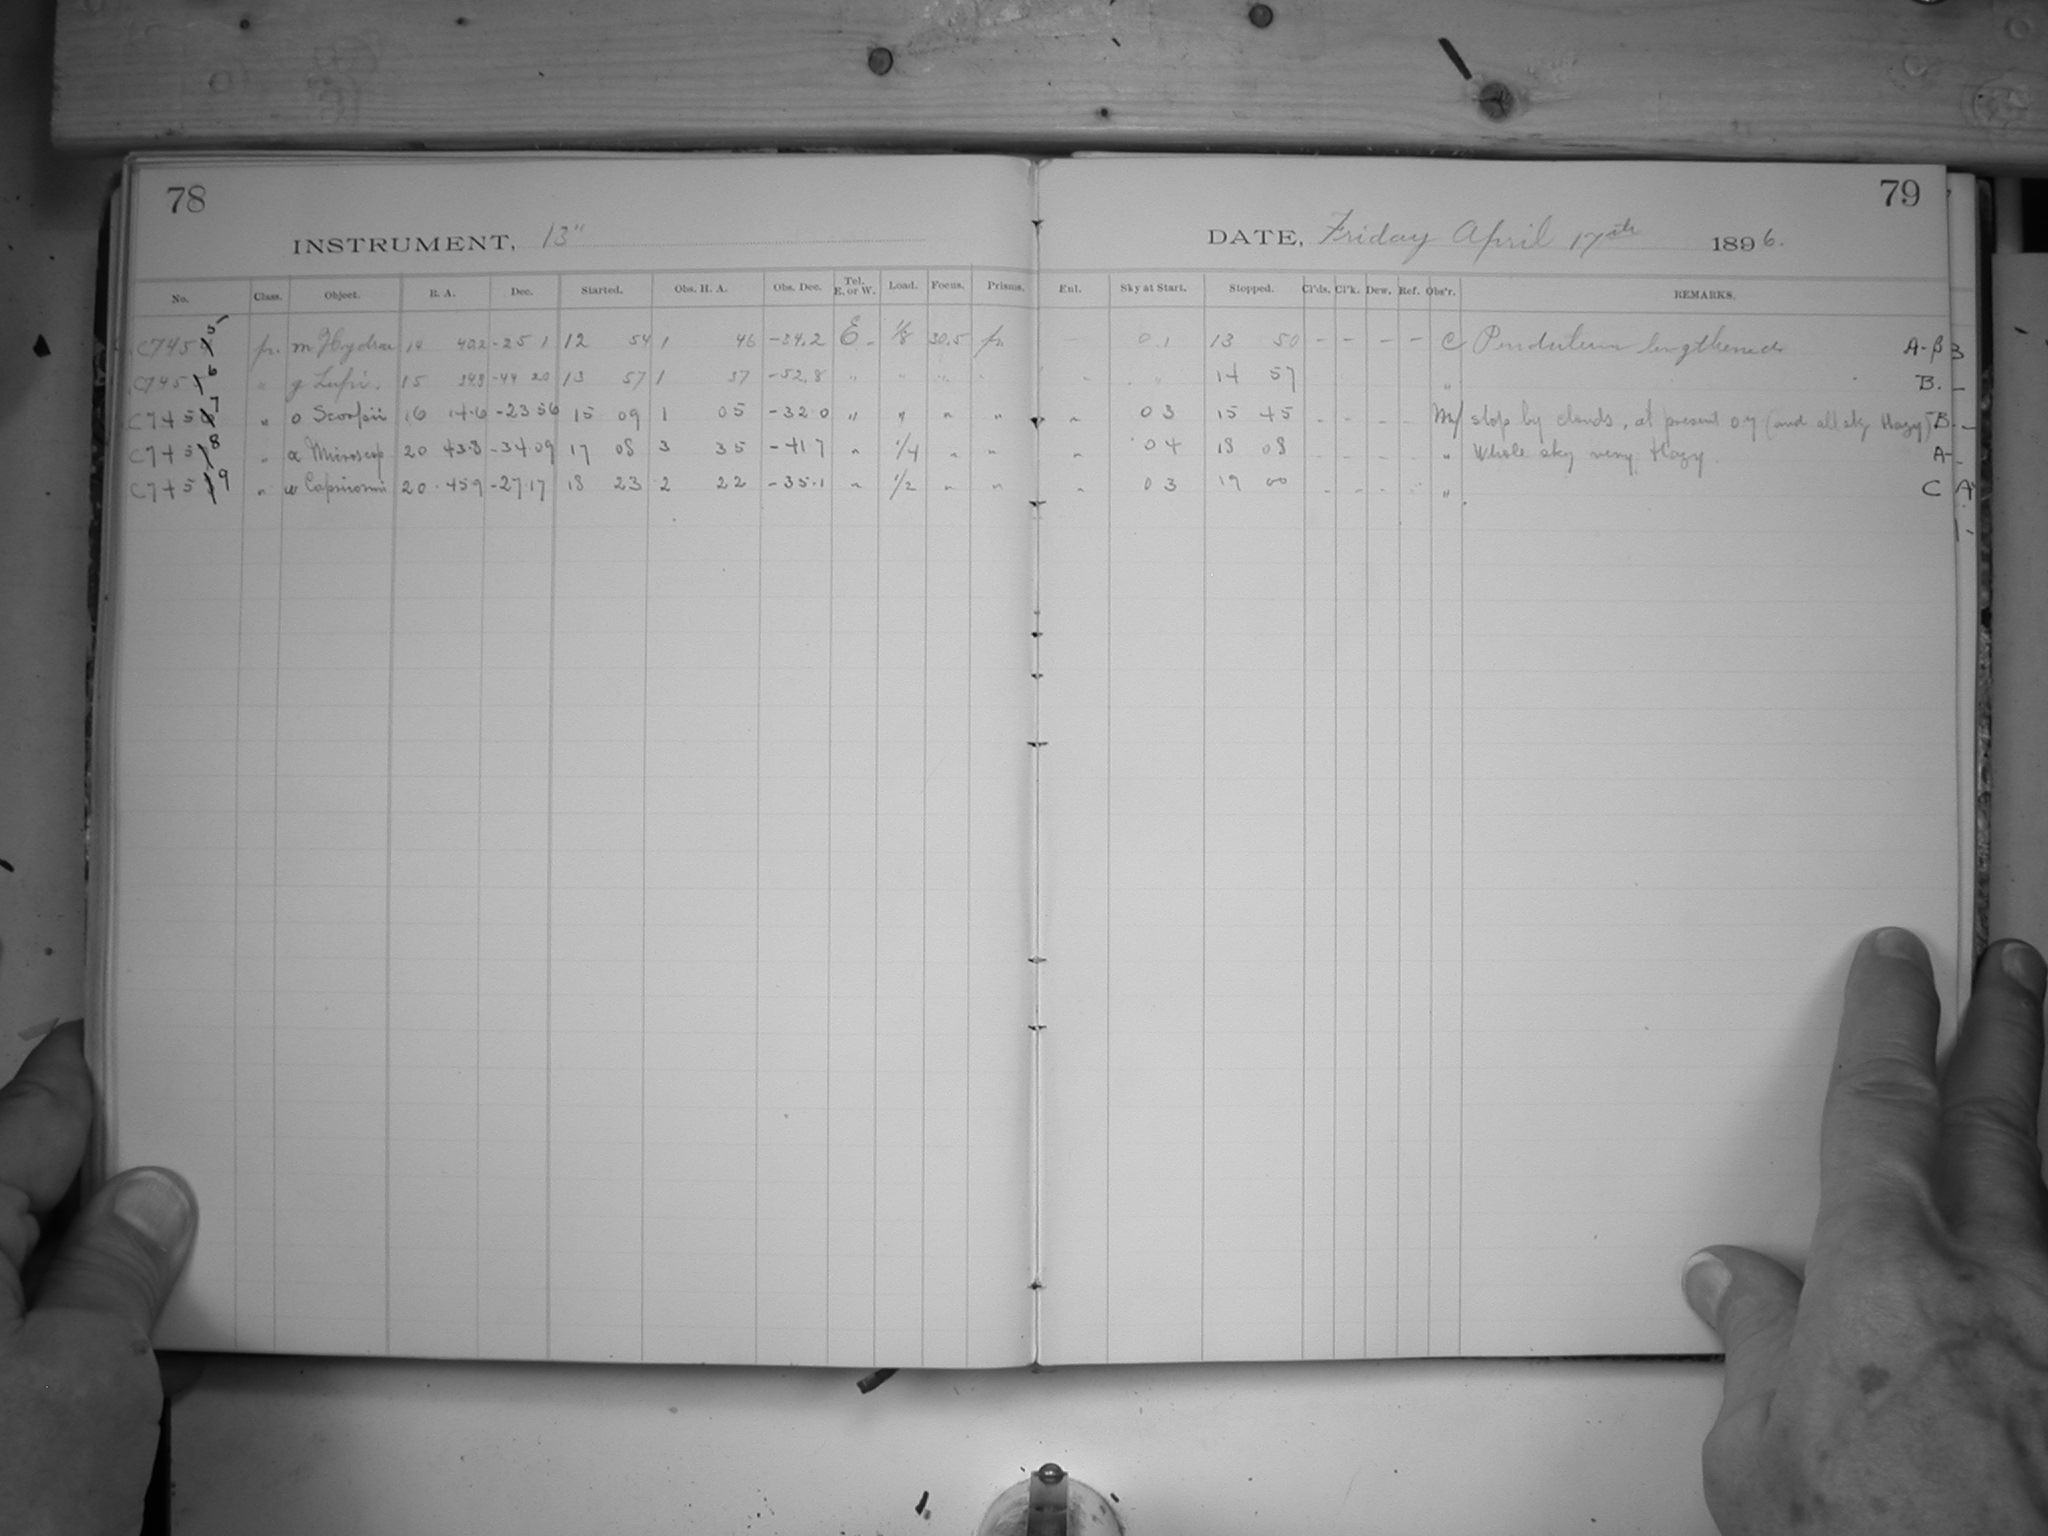 78
INSTRUMENT, 13"
No. Class. Object. R. A. Dec. Started. Obs. H. A. Obs. Dec. Tel. E. or W. Load. Focus. Prisms.
C7455 pr. m Hydrae 14 40.2 -25 1 12 54 1 46 -34.2 E. 1/8 30.5 pr.
C7456 " g Lupi. 15 34.3 -44 20 13 57 1 37 -52.8 " " " "
C7457 " o Scorpii 16 14.6 -23 56 15 09 1 05 -32.0 " " " "
C7458 " α Microscop 20 43.8 -34.09 17 08 3 35 -41.7 " 1/4 " "
C7459 " ω Capricorni 20 45.9 -27.17 18 23 2 22 -35.1 " 1/2 " "
79
DATE, Friday April 17th 1896.
Enl. Sky at Start. Stopped. Cl'ds. Cl'k. Dew. Ref. Obs'r. REMARKS.
– 0.1 13 50 - - - - C Pendulum lengthened A-B 3
" " 14 57 " B. -
" 03 15 45 - - - - stop by clouds, at present 0.7 (and all sky Hazy) B - -
" 04 18 08 - - - - " Whole sky very Hazy. A -
" 03 19 00 - - - - " C A